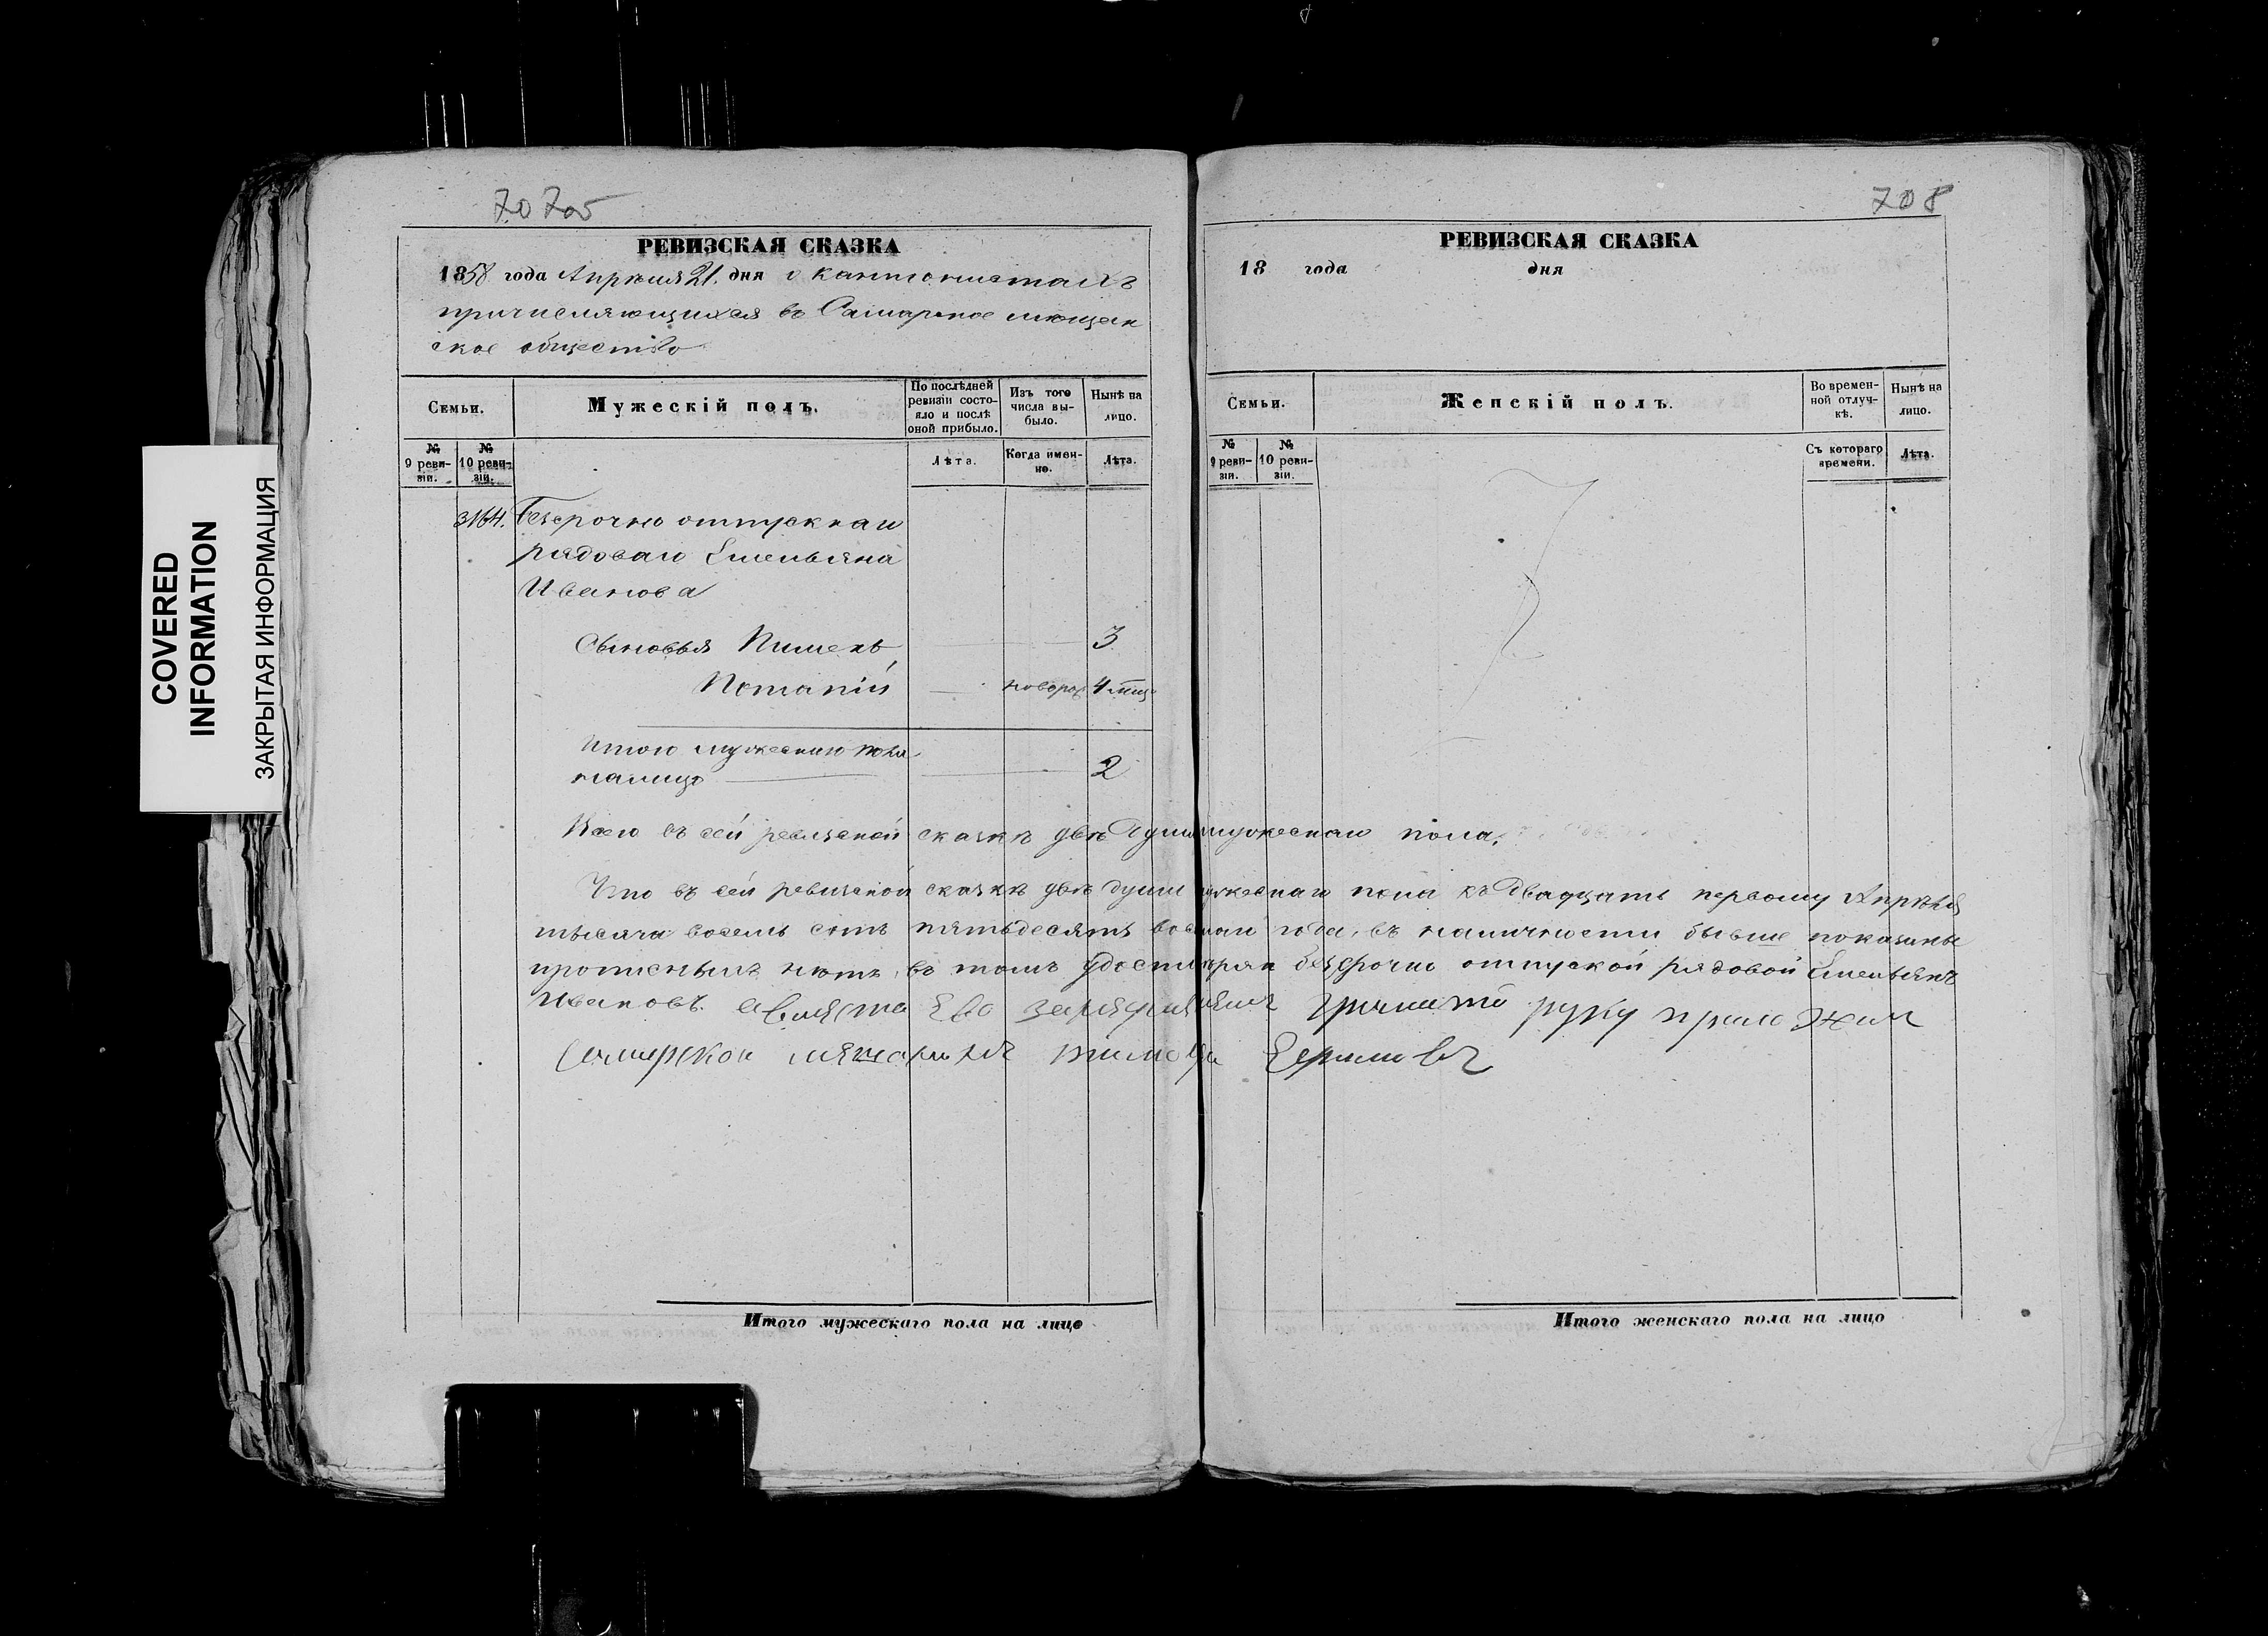 70 705
РЕВИЗСКАЯ СКАЗКА
1858 года Апреля 21. дня о кантонистахъ
причисляющихся въ Самарское мещан
ское общество
Семьи.
Мужескій полъ.
По послѣдней ревизіи состояло и послѣ оной прибыло.
Изъ того числа выбыло.
Нынѣ на лицо.
№ 9 ревизіи.
№ 10 ревизіи.
Лѣта.
Когда именно.
Лѣта.
3164. Безсрочно отпускнаго
рядоваго Емельяна
Иванова
Сыновья Пименъ 3
новорож 4 мѣц
Итого мужескаго пола
налицо 2
708
РЕВИЗСКАЯ СКАЗКА
18 года дня
Семьи.
Женскій полъ.
Во временной отлучкѣ.
Нынѣ на лицо.
№ 9 ревизіи.
№ 10 ревизіи.
Съ котораго времени.
Лѣта.
Всего въ сей ревизской сказкѣ двѣ души мужескаго пола.
Что въ сей ревизской сказкѣ двѣ души мужескаго пола къ двадцать первому Апрѣля
тысяча восемь сотъ пятьдесятъ восмаго года, въ наличности бывше показаны
прописныхъ нѣтъ, въ томъ удостовѣряю безсрочно отпускной рядовой Емельянъ
Ивановъ. а вмяста Ево руку прило жил
Итого мужескаго пола на лицо
Итого женскаго пола на лицо
COVERED
INFORMATION
ЗАКРЫТАЯ ИНФОРМАЦИЯ